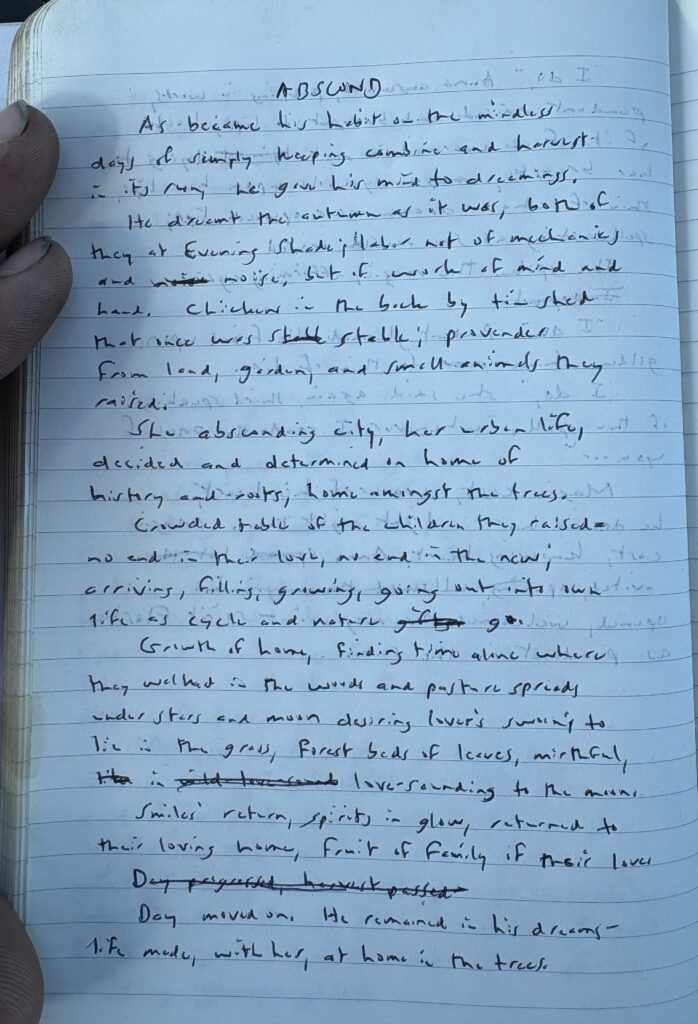 ABSCOND
As became his habit on the mindless
days of simply keeping combine and harvest
in its run, he gave his mind to dreamings.
He dreamt the autumn as it was, both of
they at Evening Shade; labor not of mechanics
and noise, but of work of mind and
hand. Chickens in the back by tin shed
that once was stable; provender
from land, garden, and small animals they
raised.
She absconding city, her urban life,
decided and determined on home of
history and roots, home amongst the trees.
Crowded table of the children they raised-
no end in their love, no end in the new;
arriving, filling, growing, going out into own
life as cycle and nature go.
Growth of home, finding time alone where
they walked in the woods and pasture spreads
under stars and moon desiring lover's swoon, to
lie in the grass, forest beds of leaves, mirthful,
in love-sounding to the moon.
Smiles' return, spirits in glow, returned to
their loving home, fruit of family of their love
Day progressed, harvest passed
Day moved on. He remained in his dreams-
life made, with her, at home in the trees.